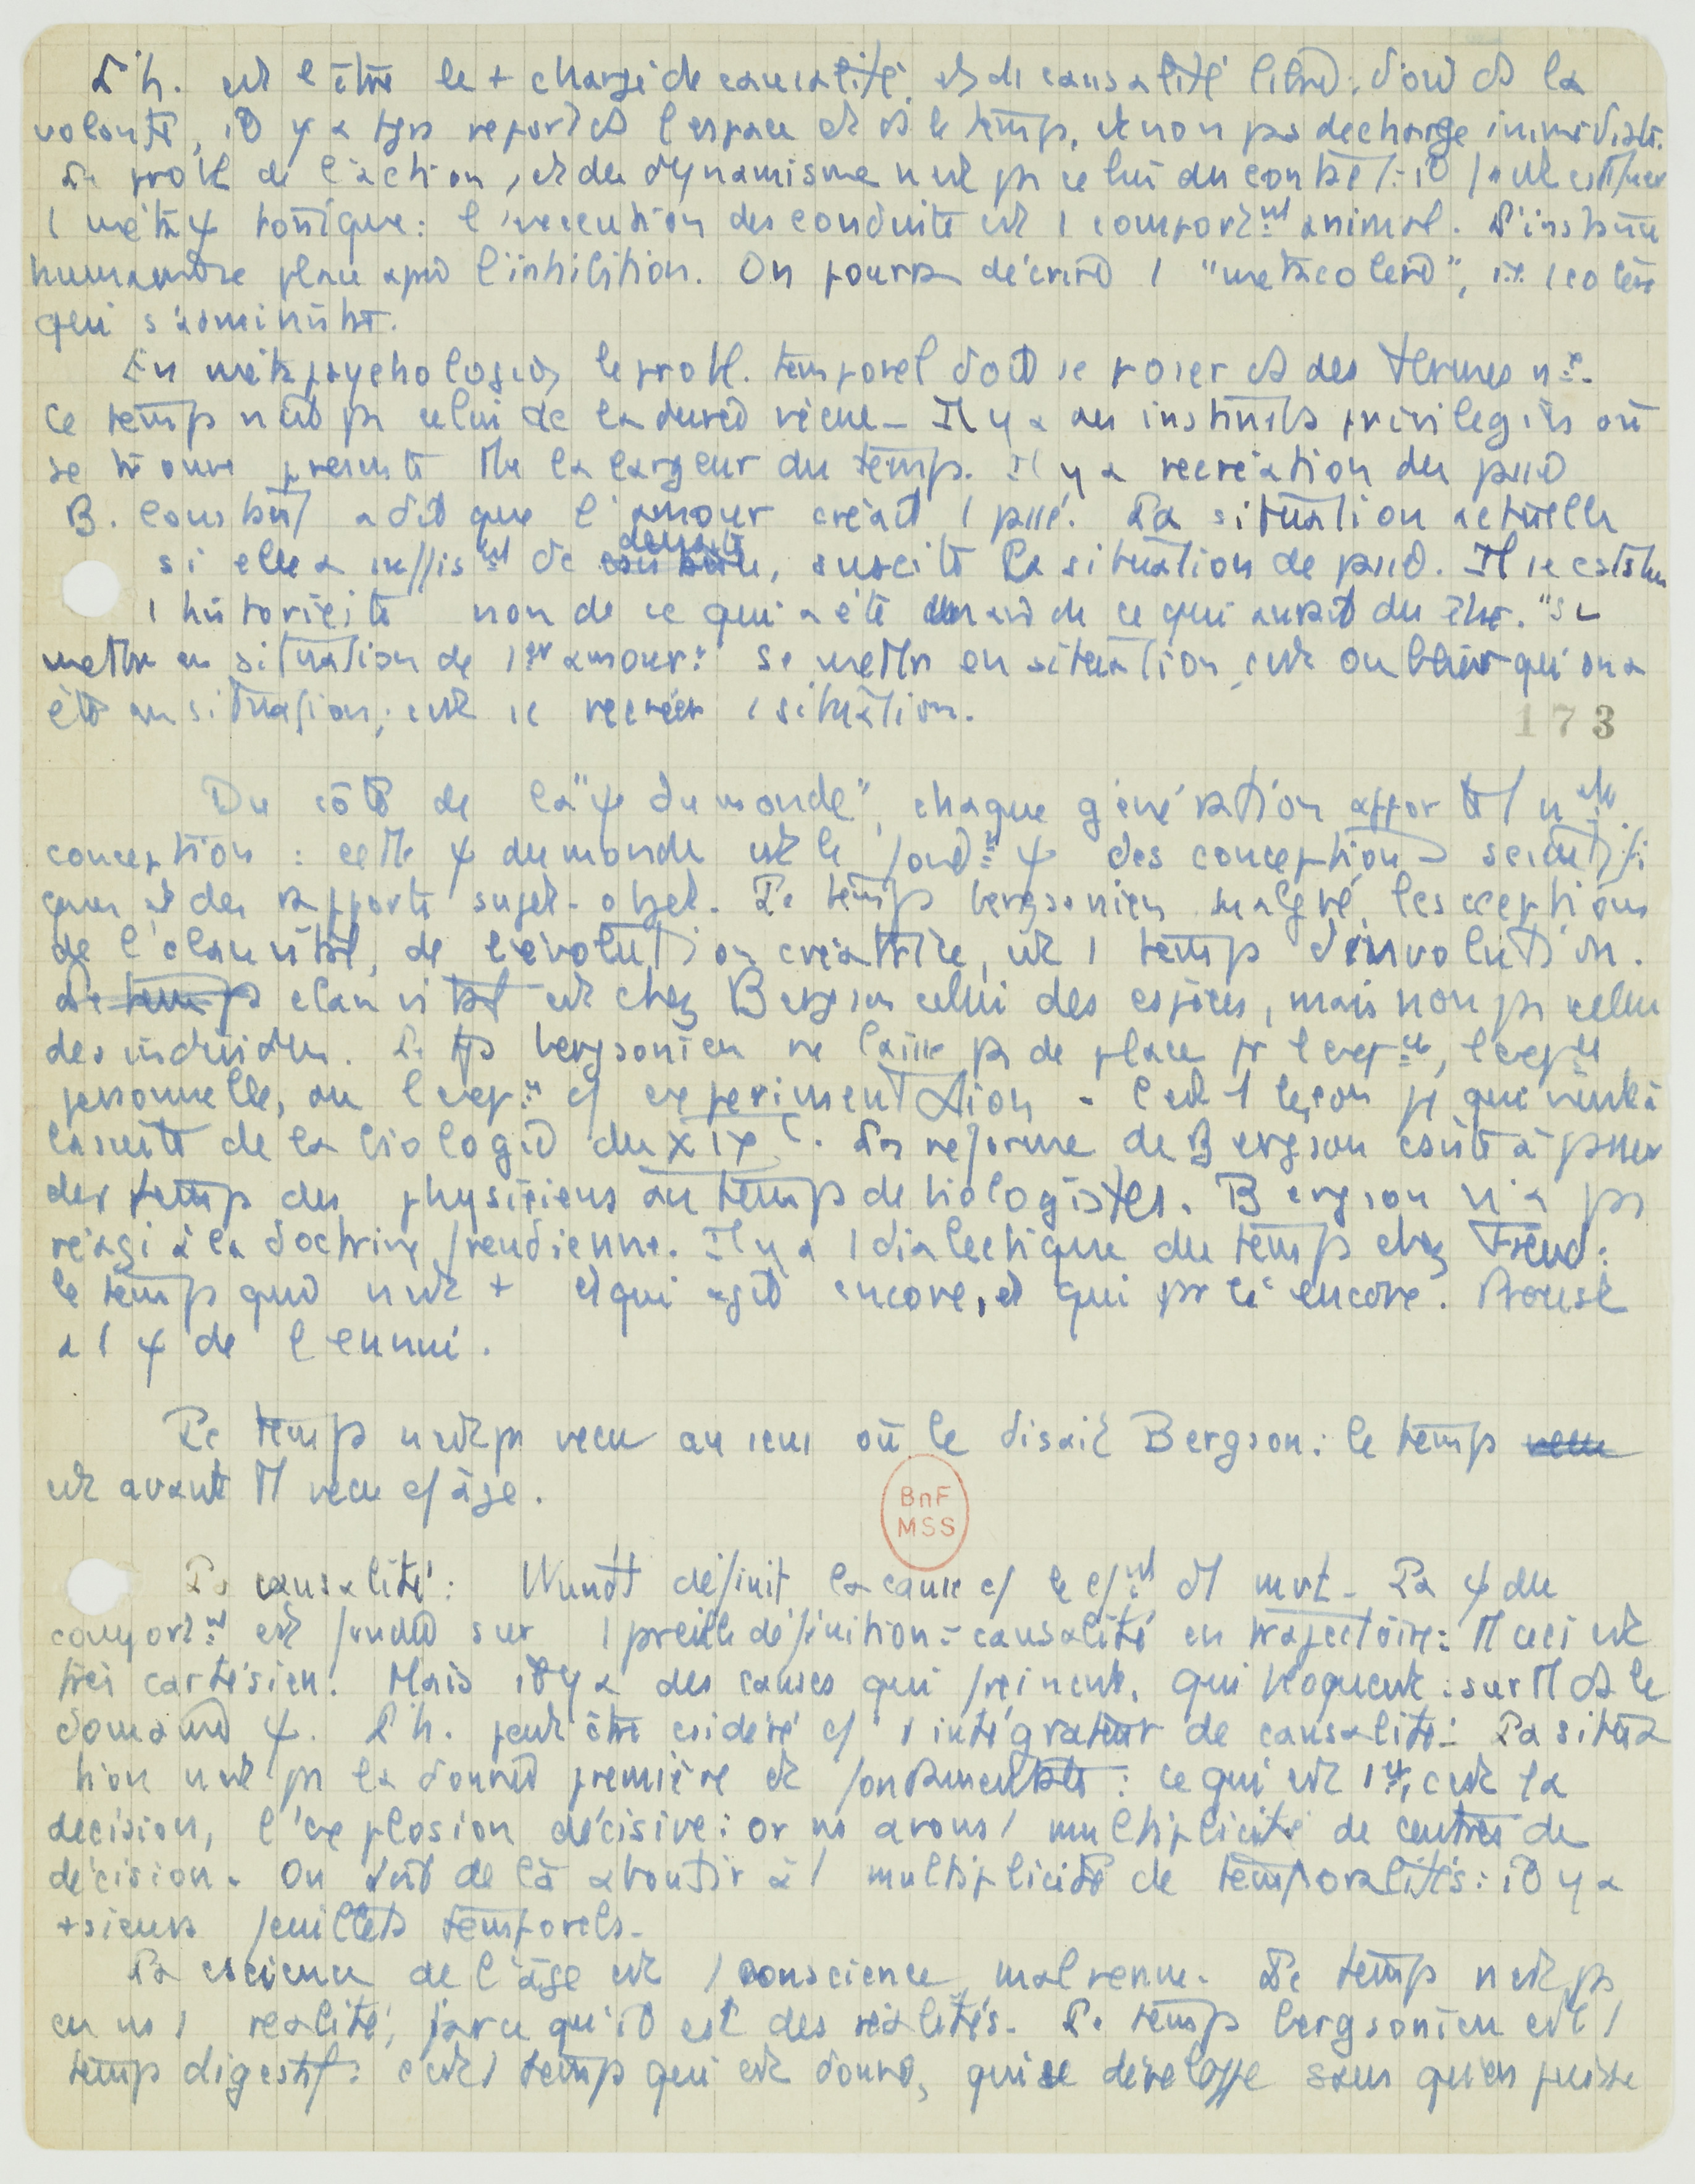 L'h. est l'être le + chargé de causalité, et de causalité libre; d'où ds la
volonté, il y a tjrs report ds l'espace et ds le temps, et non pas decharge immediate.
Le probl de l'action, et du dynamisme n'est ps celui du contact: il faut
1 métaψ tonique: l'execution des conduites est 1 comport^mt animal. L'instinct
humain se place après l'inhibition. On pourra décrire 1 "metacolere", i.e. 1 colère
qui s'administre.
En métapsychologie, le probl. temporel doit se poser ds des termes n^x.
Ce temps n'est ps celui de la durée vécue - Il y a des instants privilegiés où
se trouve presente tte la largeur du temps. Il y a recréation du passé
B. Constant a dit que l'amour créait 1 passé. La situation actuelle
si elle a suffis^mt de densité, suscite la situation de passé. Il se constitue
1 historicité non de ce qui a été mais de ce qui aurait du être. "Se
mettre en situation de 1er amour": se mettre en situation, c'est oublier qu'on a
été en situation; c'est se recréer 1 situation.
173
Du côté de la "ψ du monde", chaque génération apporte 1 n^lle
conception: cette ψ du monde est le fond^mt ψ des conceptions scientifi
ques et des rapports sujet-objet. Le temps bergsonien malgré les cceptions
de l'élan vital, de l'évolution créatrice, est 1 temps d'involution.
Le temps elan vital est chez Bergson celui des espèces, mais non ps celui
des individus. Le tps bergsonien ne laisse ps de place pr l'exp^ce, l'exp^ce
personnelle, ou l'exp^ce c/ experimentation - C'est 1 leçon ψ qui vient à
la suite de la biologie du XIXe. La reforme de Bergson csiste à passer
des temps des physiciens au temps de biologistes. Bergson n'a ps
réagi à la doctrine freudienne. Il y a 1 dialectique du temps chez Freud:
le temps qui n'est + et qui agit encore, et qui parle encore. Proust
a 1 ψ de l'ennui.
Le temps n'est ps vecu au sens où le disait Bergson: le temps vecu
est avant tt vecu c/ âge.
La causalité: Wundt définit la cause c/ le c/^mt d'1 mvt - La ψ du
comport^mt est fondée sur 1 pareille définition - causalité en trajectoire: tt ceci est
très cartésien. Mais il y a des causes qui freinent, qui bloquent: surtt ds le
domaine ψ. L'h. peut être csidéré c/ 1 intégrateur de causalité: La situa
tion n'est ps la donnée première et fondamentale: ce qui est 1er, c'est la
décision, l'explosion décisive: or ns avons 1 multiplicité de centres de
décision. On doit de là aboutir à 1 multiplicité de temporalités: il y a
+sieurs feuillets temporels.
La cscience de l'âge est 1 conscience mal venue. Le temps n'est ps
en ns 1 realité, parce qu'il est des réalités. Le temps bergsonien est 1
temps digestif: c'est 1 temps qui est donné, qui se développe sans qu'on puisse
BnF
MSS